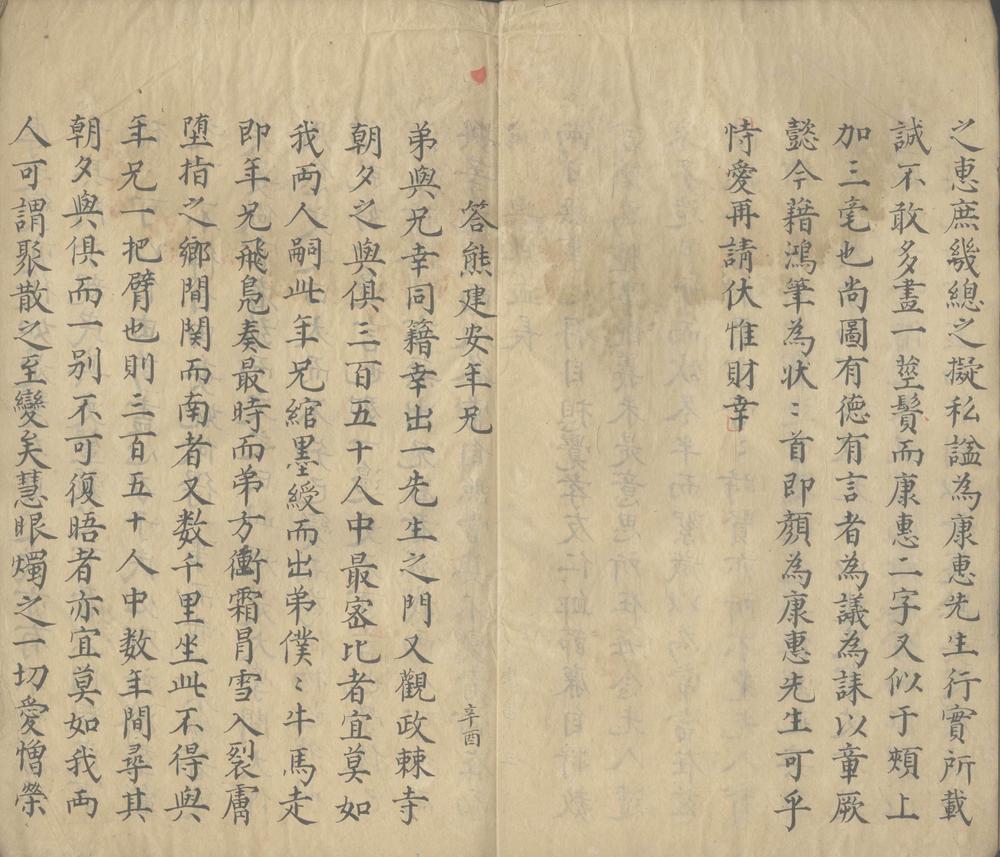 之惠庶幾總之擬私諡為康惠先生行實所載
誠不敢多盡一莖鬢而康惠二字又似于頰上
加三毫也尚圖有德有言者為議為誄以章厥
懿今藉鴻筆為狀〻首即顏為康惠先生可乎
恃愛再請伏惟財幸
答熊建安年兄 辛酉
弟與兄幸同籍幸出一先生之門又觀政棘寺
朝夕之與俱三百五十人中最宻比者宜莫如
我两人嗣此年兄綰墨綬而出弟僕〻牛馬走
即年兄飛鳧奏最時而弟方衝霜冐雪入裂膚
堕指之鄉間関而南者又数千里坐此不得與
年兄一把臂也則三百五十人中数年間尋其
朝夕與俱而一别不可復晤者亦宜莫如我两
人可謂聚散之至變矣慧眼燭之一切愛憎榮